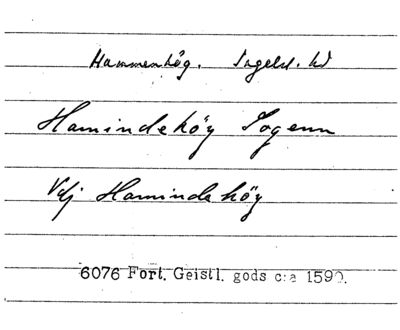 Hammenhög. Ingelst. hd
Hamindehöÿ Sogenn
Vdj Hamindehöÿ
6076 Fort. Geistl. gods c:a 1590.